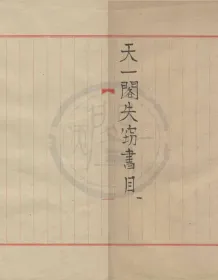 天一閣失竊書目